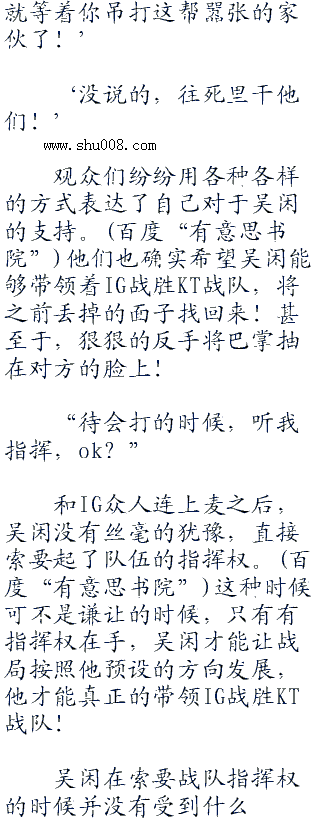 就等着你吊打这帮嚣张的家
伙了！’
‘没说的，往死里干他
们！’
www.shu008.com
观众们纷纷用各种各样
的方式表达了自己对于吴闲
的支持。(百度“有意思书
院”)他们也确实希望吴闲能
够带领着IG战胜KT战队，将
之前丢掉的面子找回来！甚
至于，狠狠的反手将巴掌抽
在对方的脸上！
“待会打的时候，听我
指挥，ok？”
和IG众人连上麦之后，
吴闲没有丝毫的犹豫，直接
索要起了队伍的指挥权。(百
度“有意思书院”)这种时候
可不是谦让的时候，只有有
指挥权在手，吴闲才能让战
局按照他预设的方向发展，
他才能真正的带领IG战胜KT
战队！
吴闲在索要战队指挥权
的时候并没有受到什么